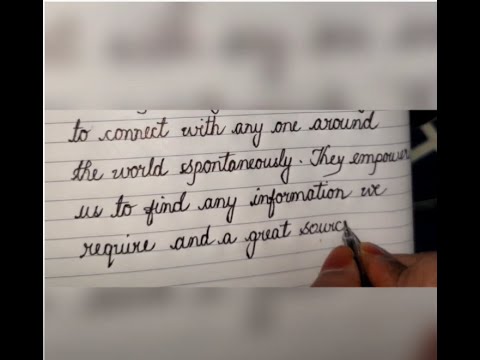 to connect with any one around
the world spontaneously. They empower
us to find any information we
require and a great sourc